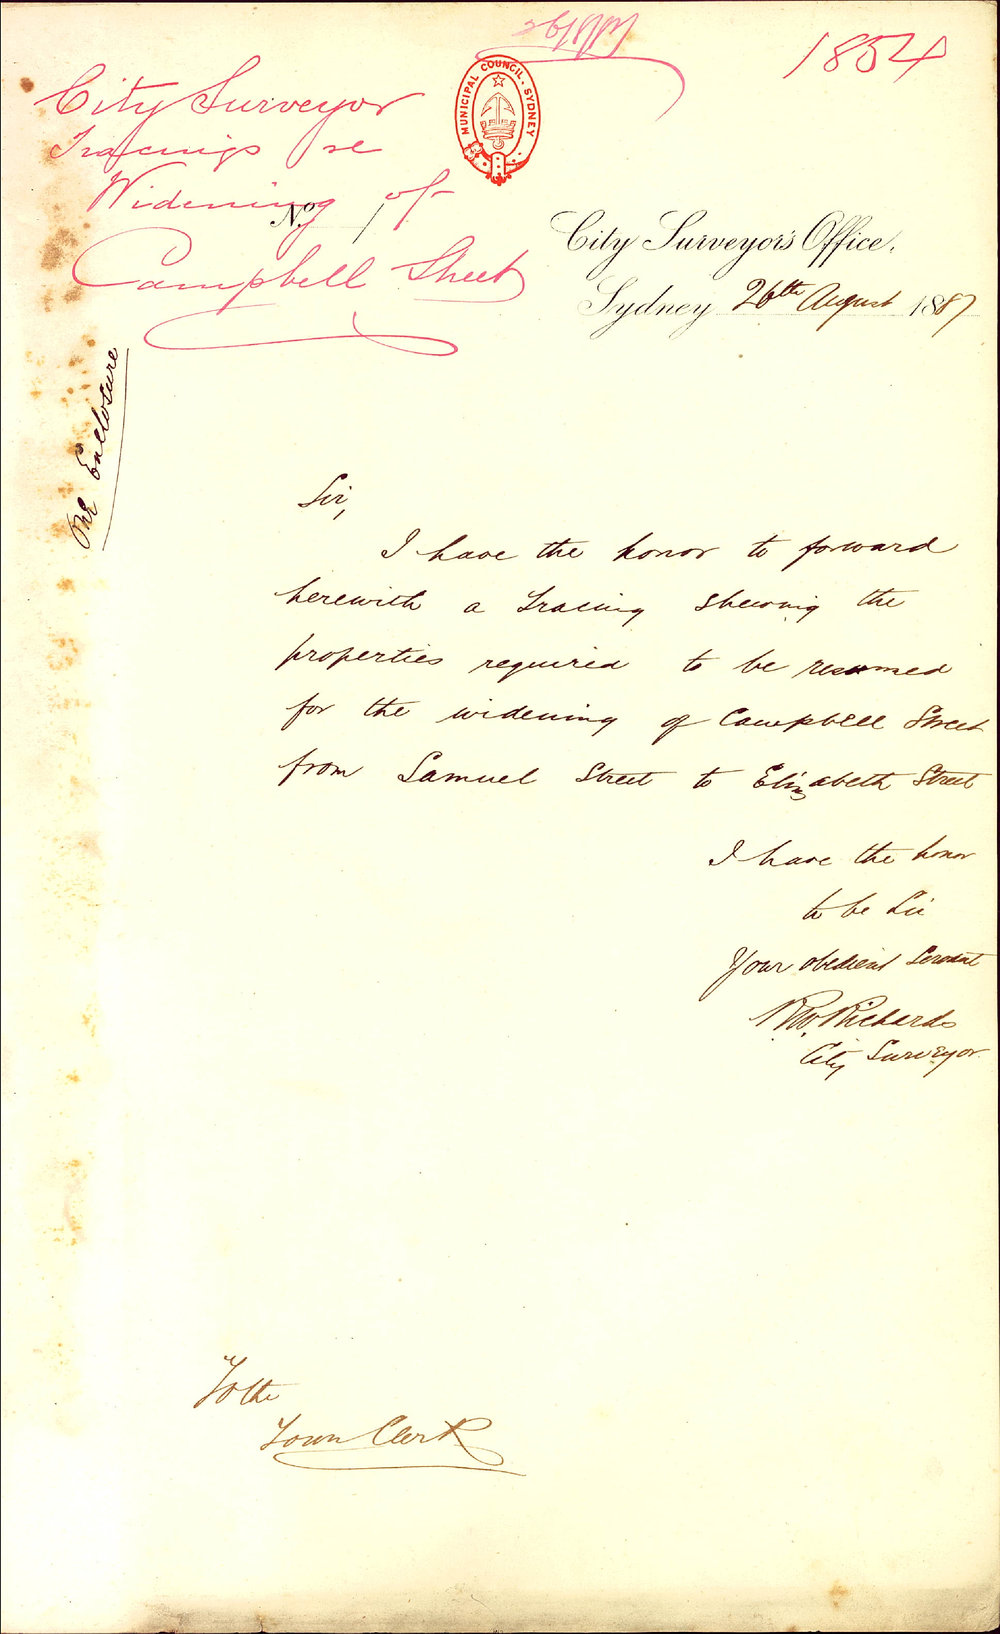 1854
MUNICIPAL COUNCIL. SYDNEY
City Surveyor
Tracings re
Widening of
Campbell Street
No. 1
City Surveyor's Office,
Sydney 26th August 1887
One Enclosure
Sir,
I have the honor to forward
herewith a tracing shewing the
properties required to be resumed
for the widening of Campbell Street
from Samuel Street to Elizabeth Street
I have the honor
to be Sir
Your obedient Servant
R.W. Richards
City Surveyor.
To the
Town Clerk